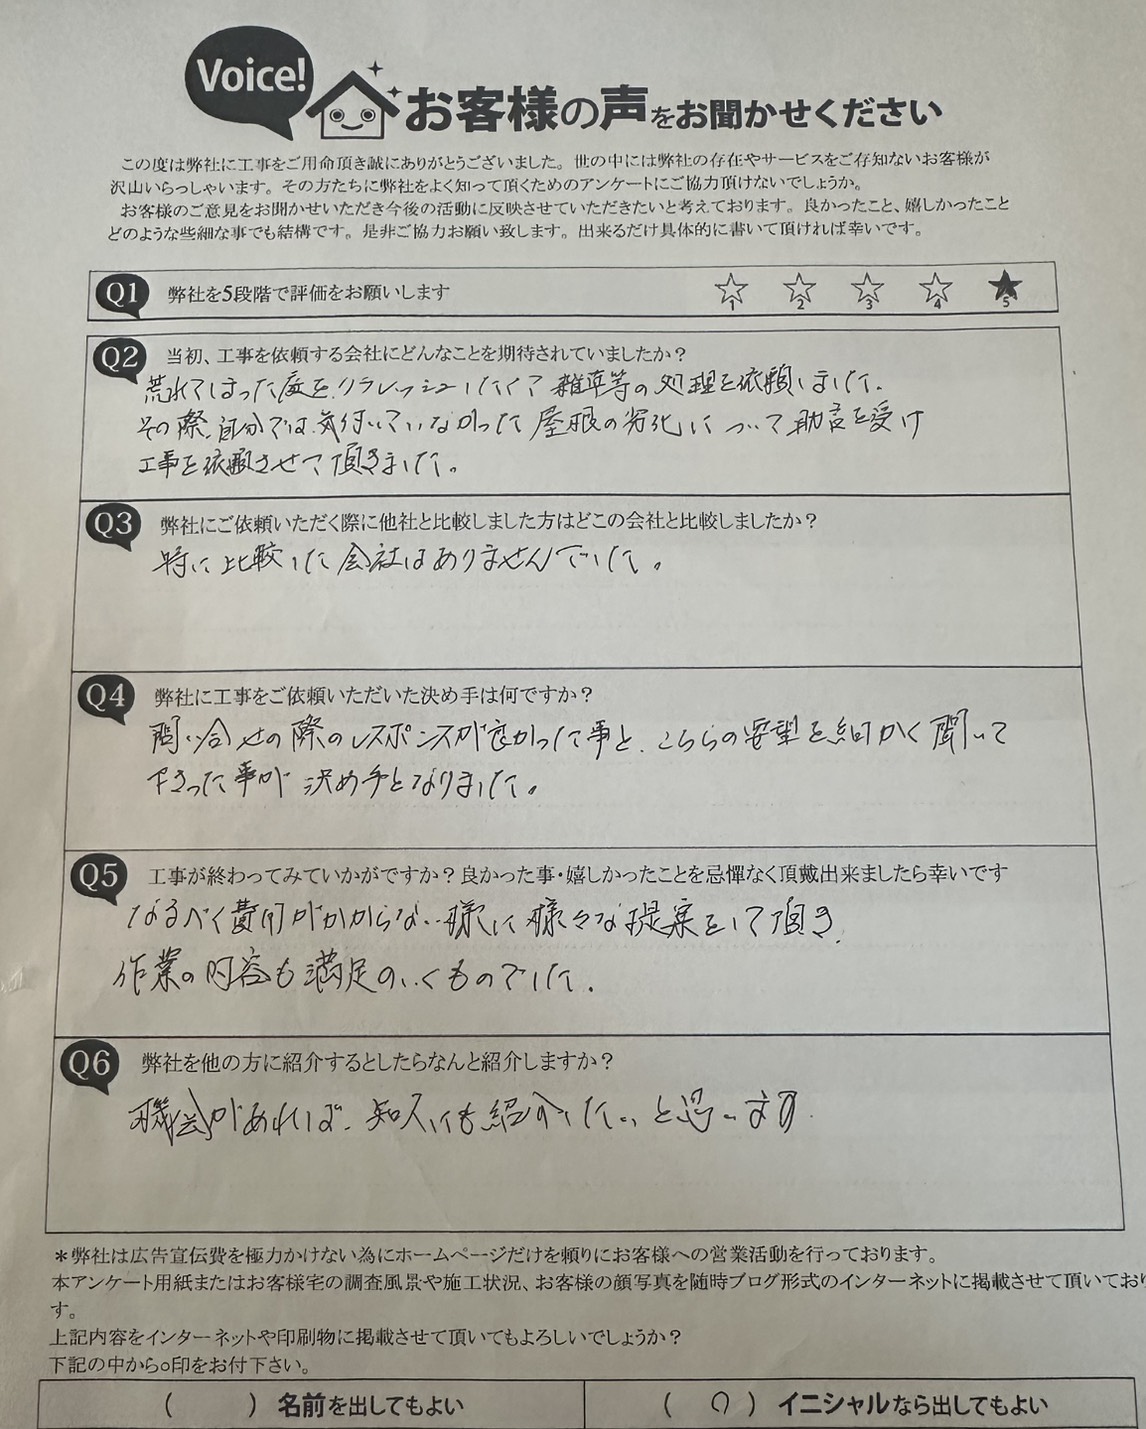 Voice!
お客様の声をお聞かせください
この度は弊社に工事をご用命頂き誠にありがとうございました。世の中には弊社の存在やサービスをご存知ないお客様が
沢山いらっしゃいます。その方たちに弊社をよく知って頂くためのアンケートにご協力頂けないでしょうか。
お客様のご意見をお聞かせいただき今後の活動に反映させていただきたいと考えております。良かったこと、嬉しかったこと
どのような些細な事でも結構です。是非ご協力お願い致します。出来るだけ具体的に書いて頂ければ幸いです。
Q1 弊社を5段階で評価をお願いします ☆1 ☆2 ☆3 ☆4 ★5
Q2 当初、工事を依頼する会社にどんなことを期待されていましたか?
荒れてしまった庭をリフレッシュしたくて雑草等の処理を依頼しました。
その際、自分では気付いていなかった屋根の劣化について助言を受け
工事を依頼させて頂きました。
Q3 弊社にご依頼いただく際に他社と比較しました方はどこの会社と比較しましたか?
特に比較した会社はありませんでした。
Q4 弊社に工事をご依頼いただいた決め手は何ですか?
問い合せの際のレスポンスが良かった事と、こちらの要望を細かく聞いて
下さった事が決め手となりました。
Q5 工事が終わってみていかがですか?良かった事・嬉しかったことを忌憚なく頂戴出来ましたら幸いです
なるべく費用がかからない様に様々な提案をして頂き、
作業の内容も満足のいくものでした。
Q6 弊社を他の方に紹介するとしたらなんと紹介しますか?
機会があれば、知人にも紹介したいと思います。
*弊社は広告宣伝費を極力かけない為にホームページだけを頼りにお客様への営業活動を行っております。
本アンケート用紙またはお客様宅の調査風景や施工状況、お客様の顔写真を随時ブログ形式のインターネットに掲載させて頂いておりま
す。
上記内容をインターネットや印刷物に掲載させて頂いてもよろしいでしょうか?
下記の中から○印をお付下さい。
( ) 名前を出してもよい ( ○ ) イニシャルなら出してもよい